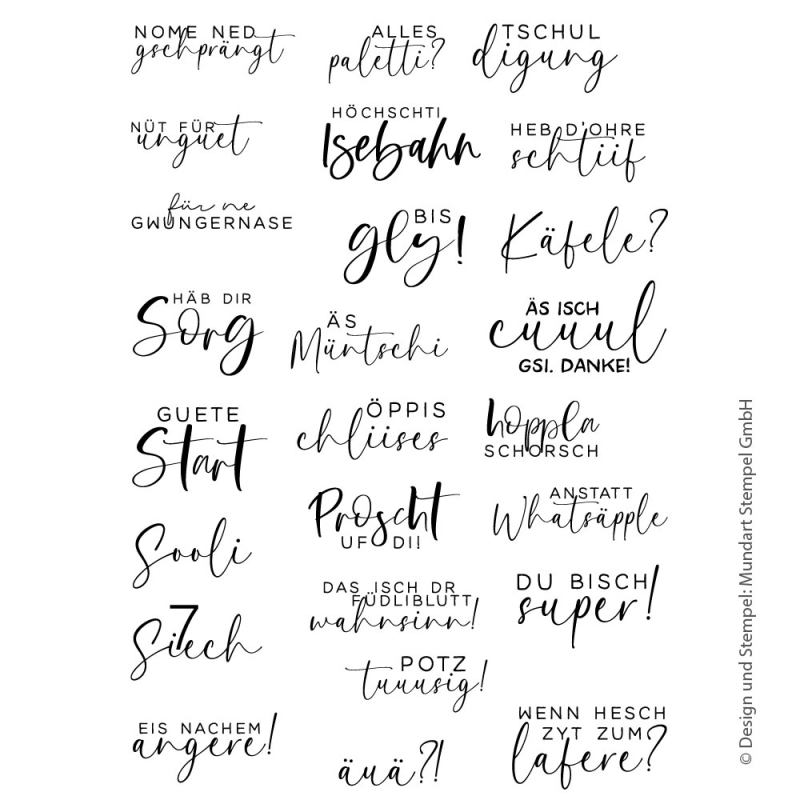 NOME NED
gschprängt
ALLES
paletti?
TSCHUL
digung
NÜT FÜR
unguet
HÖCHSCHTI
Isebahn
HEB D'OHRE
schtiif
für ne
GWUNGERNASE
BIS
gly!
Käfele?
HÄB DIR
Sorg
ÄS
Müntschi
ÄS ISCH
cuuul
GSI. DANKE!
GUETE
Start
ÖPPIS
chliises
hoppla
SCHORSCH
Sooli
Proscht
UF DI!
ANSTATT
Whatsäpple
7
Siech
DAS ISCH DR
FÜDLIBLUTT
wahnsinn!
DU BISCH
super!
POTZ
tuuusig!
EIS NACHEM
angere!
äuä?!
WENN HESCH
ZYT ZUM
lafere?
© Design und Stempel: Mundart Stempel GmbH